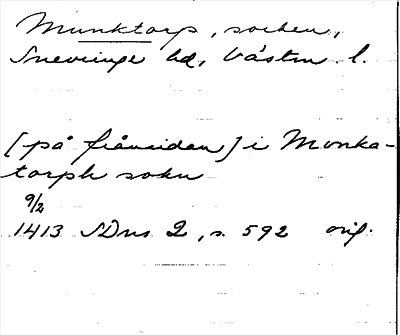 Munktorp, socken,
Snevringe hd, Västm. l.
[på frånsidan] i Monka-
torph sokn
9/2
1413 SDns 2, s. 592 orig.